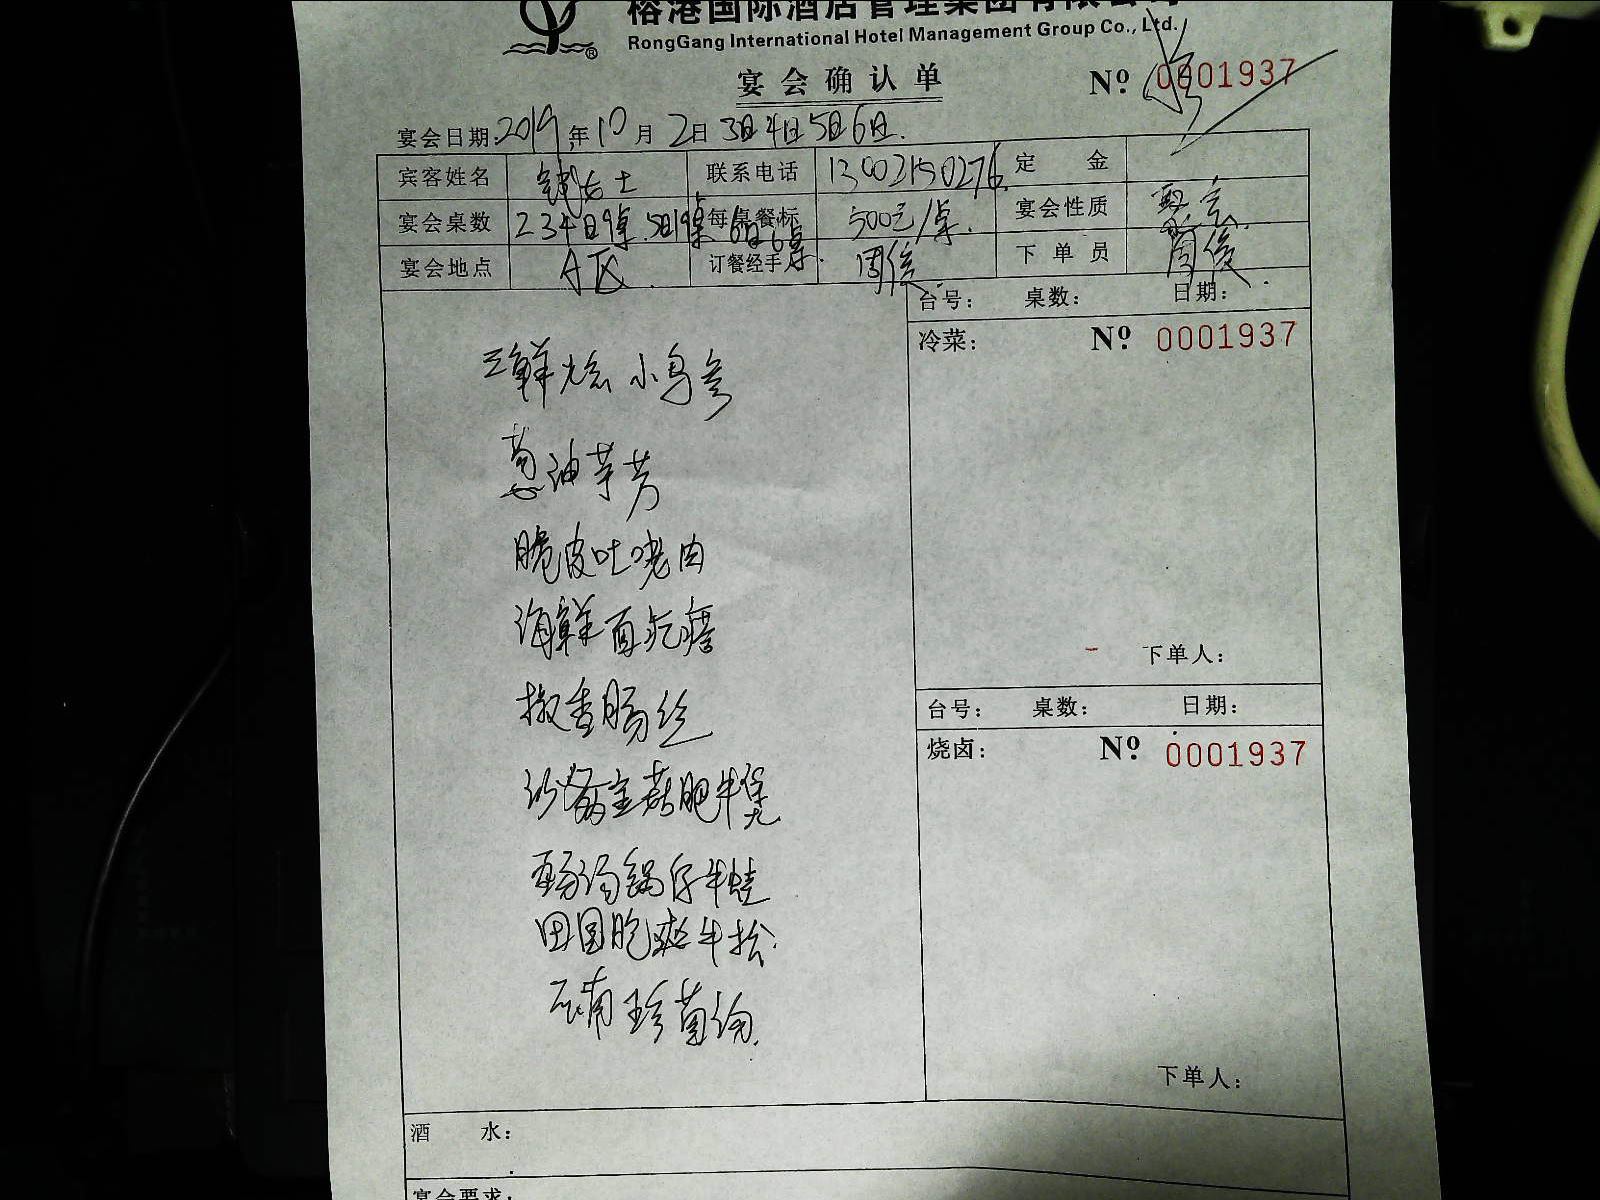 榕港国际酒店管理集团有限公司
RongGang International Hotel Management Group Co., Ltd.
®
宴会确认单
Nº 0001937
宴会日期:2019年10月2日3日4日5日6日.
宾客姓名 女士 联系电话 13002150276. 定 金
宴会桌数 234日9桌.5日9桌.6日6桌. 每桌餐标 500元/桌. 宴会性质 聚会.
宴会地点 A区. 订餐经手 周俊 下单员 周俊.
台号: 桌数: 日期:
冷菜: Nº 0001937
三鲜烩小乌参
葱油芋艿
脆皮吐烤肉
海鲜面疙瘩
椒香肠丝
沙茶金菇肥牛煲
汤锅仔牛蛙
田园脆爽牛松
珍菌汤.
下单人:
台号: 桌数: 日期:
烧卤: Nº 0001937
下单人:
酒 水:
宴会要求: